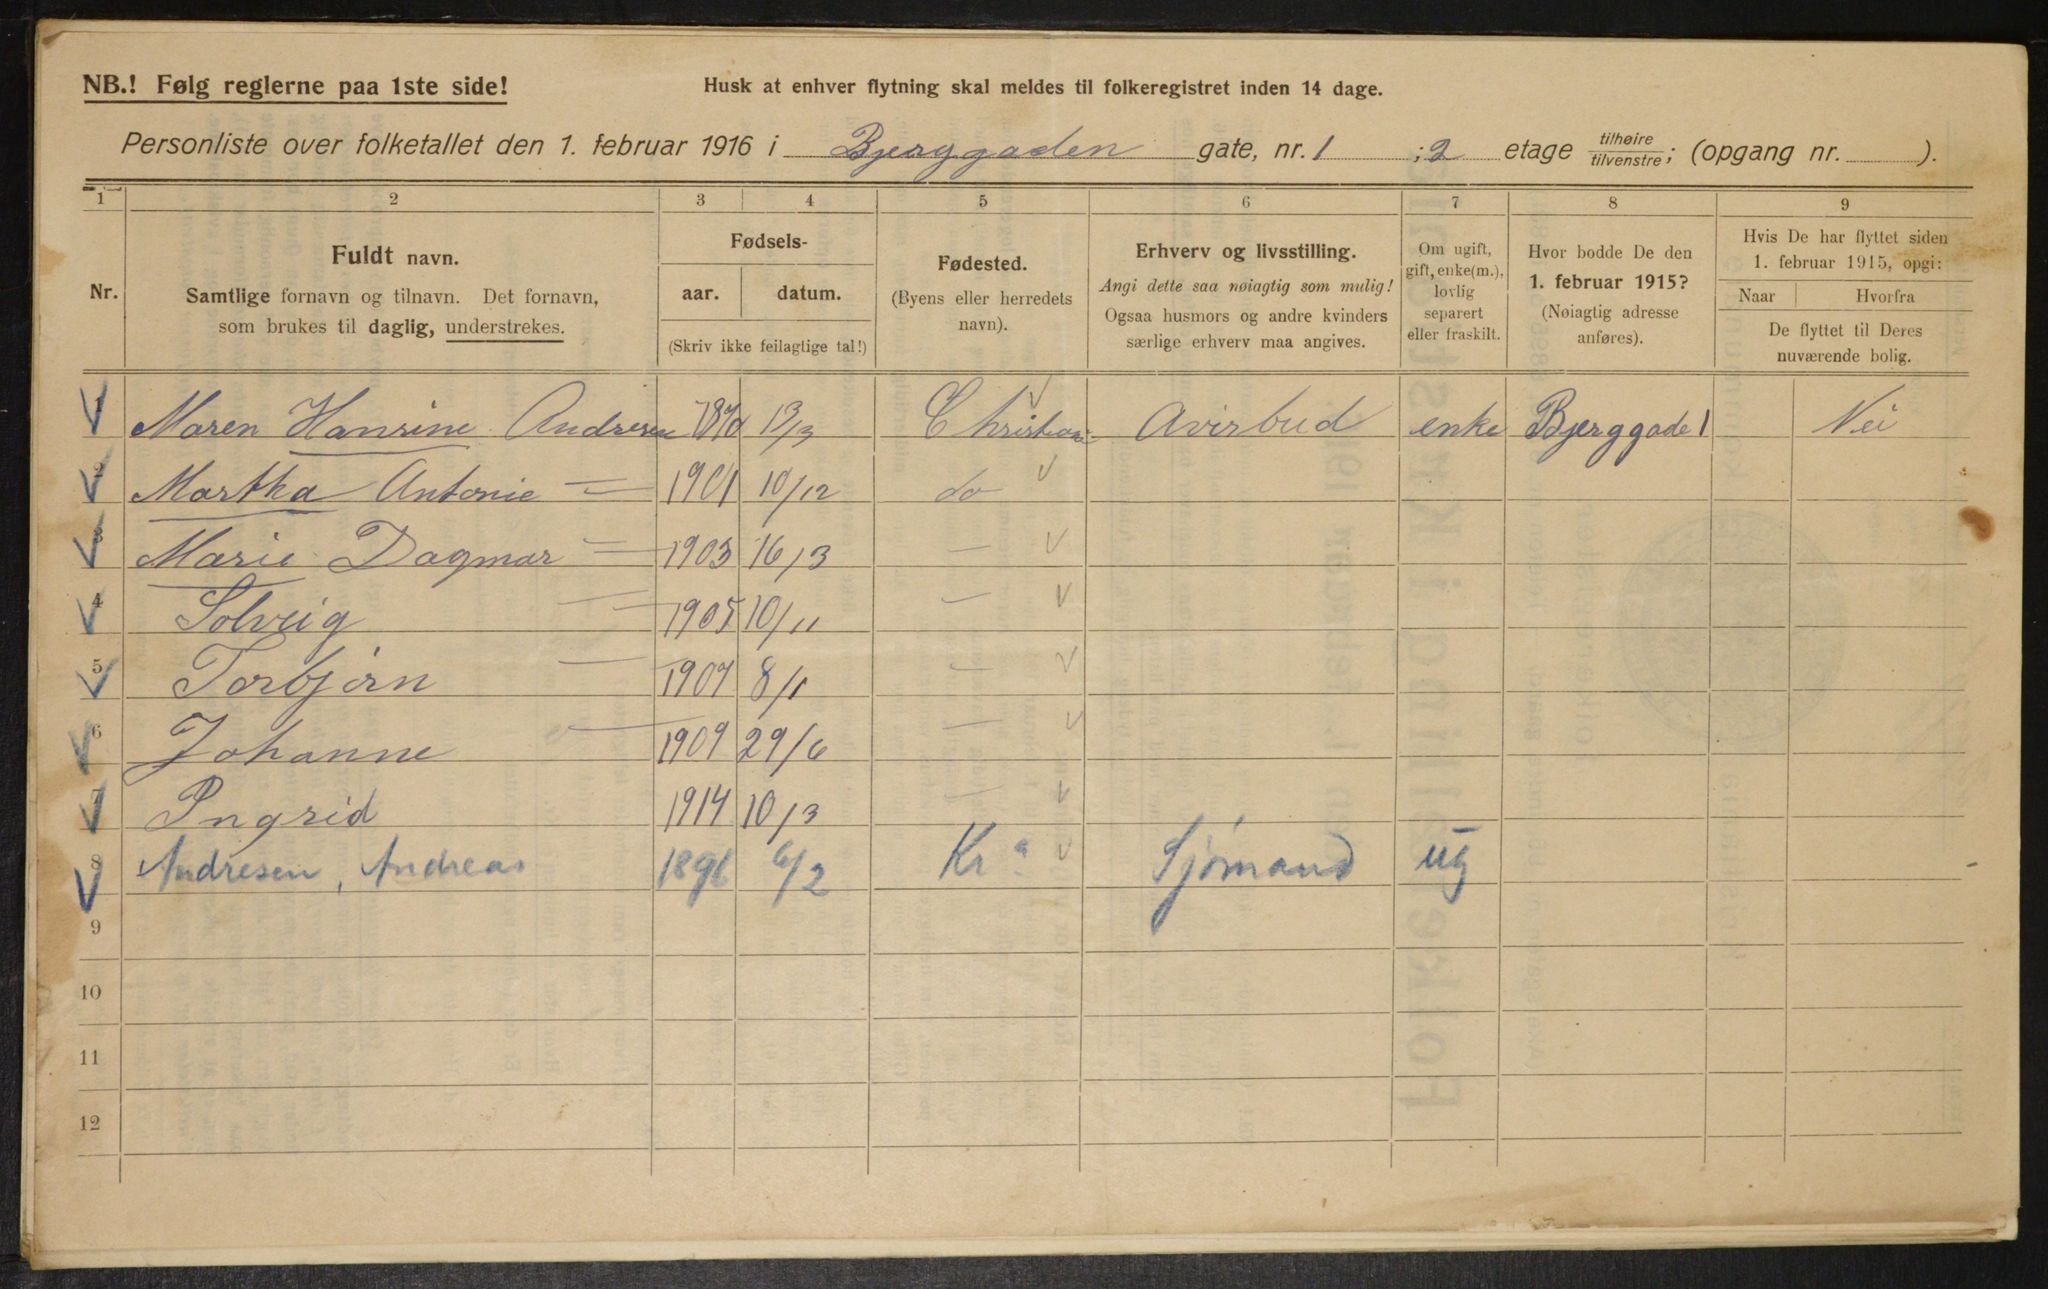 NB.! Følg reglerne paa 1ste side!
Husk at enhver flytning skal meldes til folkeregistret inden 14 dage.
Personliste over folketallet den 1. februar 1916 i Bjerggaden gate, nr. 1 ; 2 etage tilhøire/tilvenstre; (opgang nr. ).
1 2 3 4 5 6 7 8 9
Nr.
Fuldt navn.
Samtlige fornavn og tilnavn. Det fornavn,
som brukes til daglig, understrekes.
Fødsels-
aar. datum.
(Skriv ikke feilagtige tal!)
Fødested.
(Byens eller herredets
navn).
Erhverv og livsstilling.
Angi dette saa nøiagtig som mulig!
Ogsaa husmors og andre kvinders
særlige erhverv maa angives.
Om ugift,
gift, enke(m.),
lovlig
separert
eller fraskilt.
Hvor bodde De den
1. februar 1915?
(Nøiagtig adresse
anføres).
Hvis De har flyttet siden
1. februar 1915, opgi:
Naar Hvorfra
De flyttet til Deres
nuværende bolig.
1 Maren Hansine Andresen 13/3 Christiani Avisbud enke Bjerggade 1 Nei
2 Martha Antonie — 1901 10/12 do
3 Marie Dagmar — 1903 16/3 —
4 Solveig — 1905 10/11 —
5 Torbjørn — 1907 8/1 —
6 Johanne — 1909 29/6 —
7 Ingrid 1914 10/3 —
8 Andresen, Andreas 1896 6/2 Kr a Sjømand ug
9
10
11
12